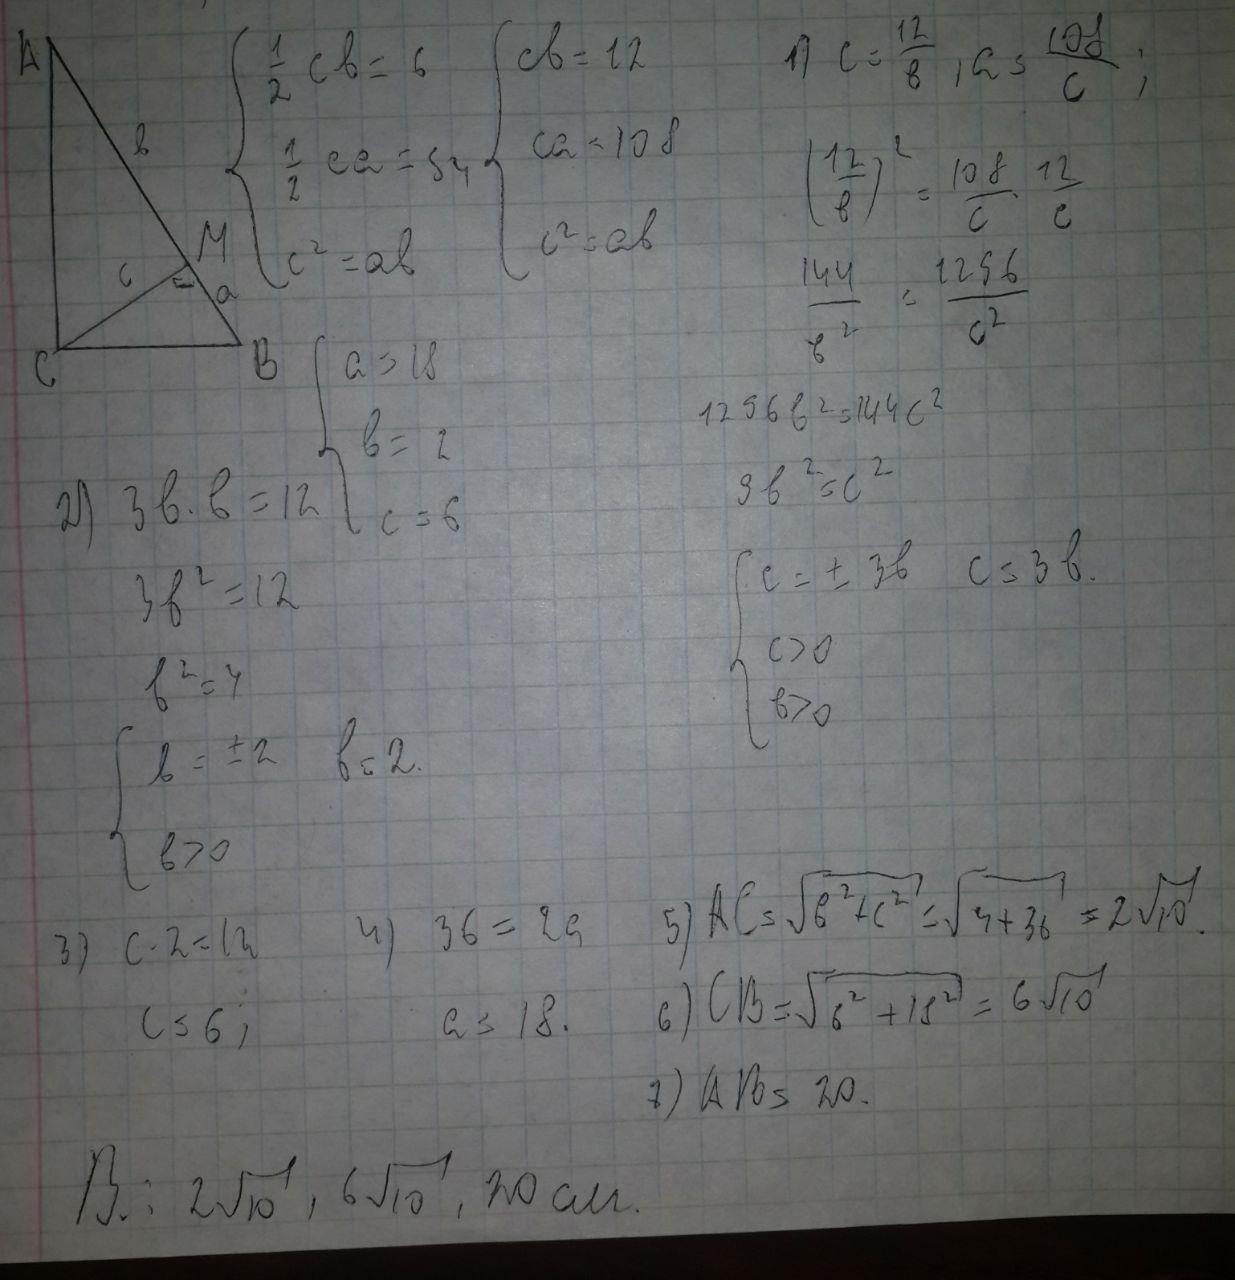 A
в
M
с
a
C
B
{ 1/2 cв = 6
1/2 ca = 54
c² = aв
{ cв = 12
ca = 108
c² = aв
1) c = 12/в, a = 108/c;
(12/в)² = 108/c 12/c
144/в² = 1296/c²
1296в² = 144c²
9в² = c²
{ c = ± 3в c = 3в.
c > 0
в > 0
{ a = 18
в = 2
c = 6
2) 3в · в = 12
3в² = 12
в² = 4
{ в = ± 2 в = 2.
в > 0
3) c · 2 = 12
c = 6;
4) 36 = 2a
a = 18.
5) AC = √(в² + c²) = √(4 + 36) = 2√10.
6) CB = √(6² + 18²) = 6√10
7) AB = 20.
В.: 2√10, 6√10, 20 см.